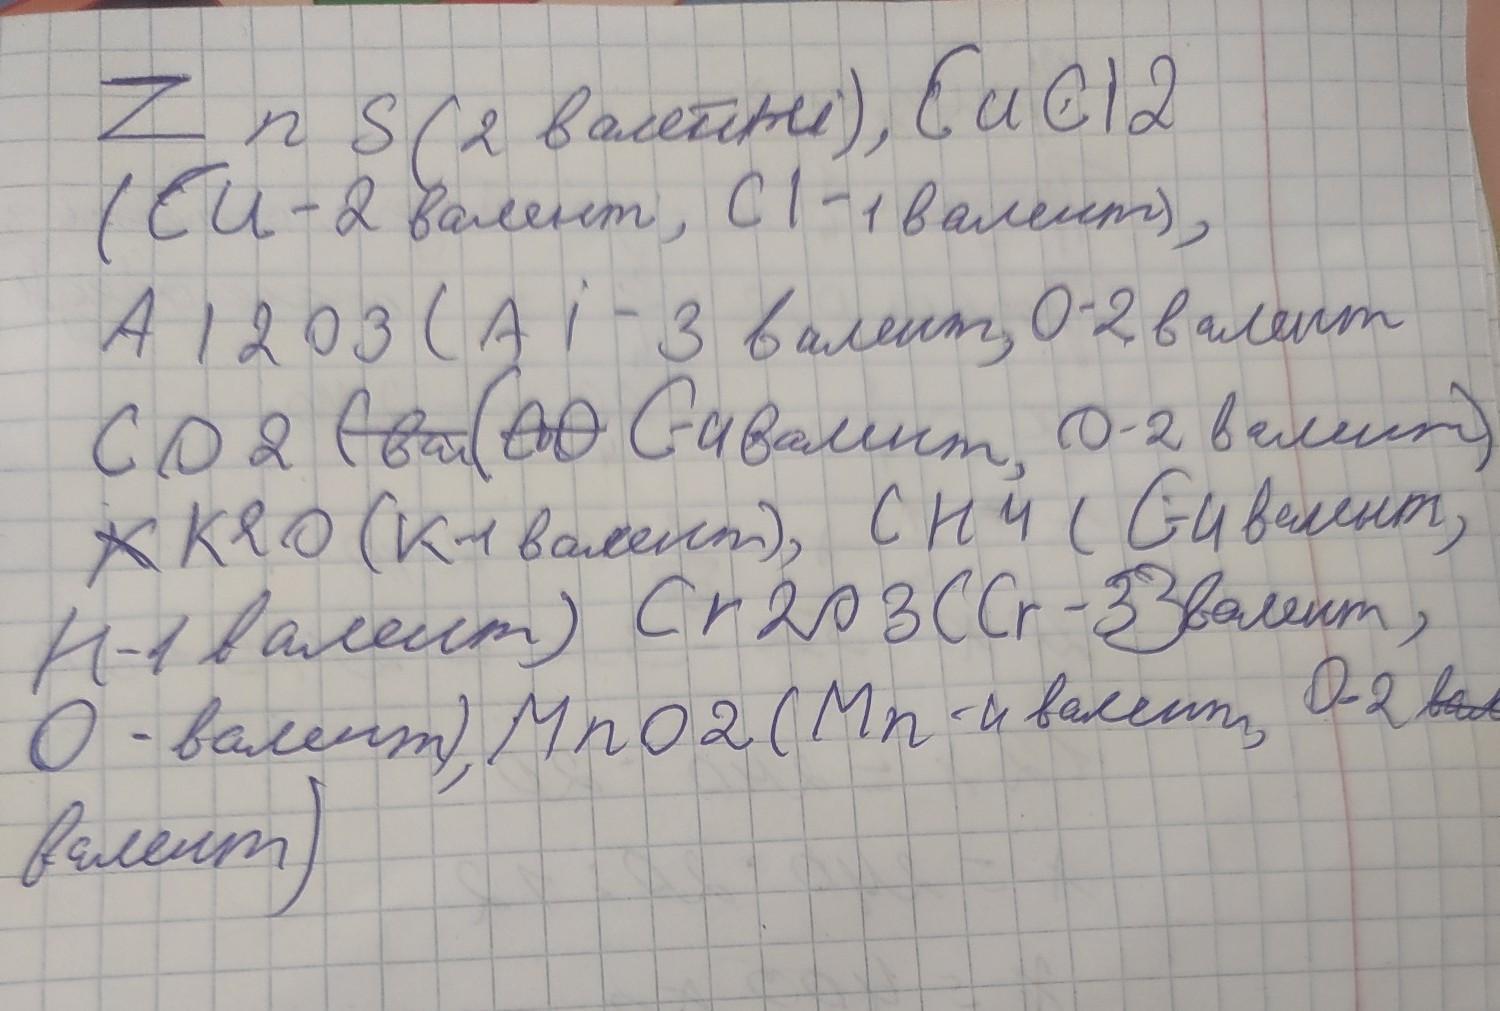 ZnS (2 валентні), CuCl2
(Cu - 2 валент, Cl - 1 валент),
Al2O3 (Al - 3 валент, O-2 валент
CO2 (C-4 валент, O-2 валент)
K2O (K-1 валент), CH4 (C-4 валент,
H-1 валент) Cr2O3 (Cr - 3 валент,
O - валент), MnO2 (Mn - 4 валент, O-2
валент)